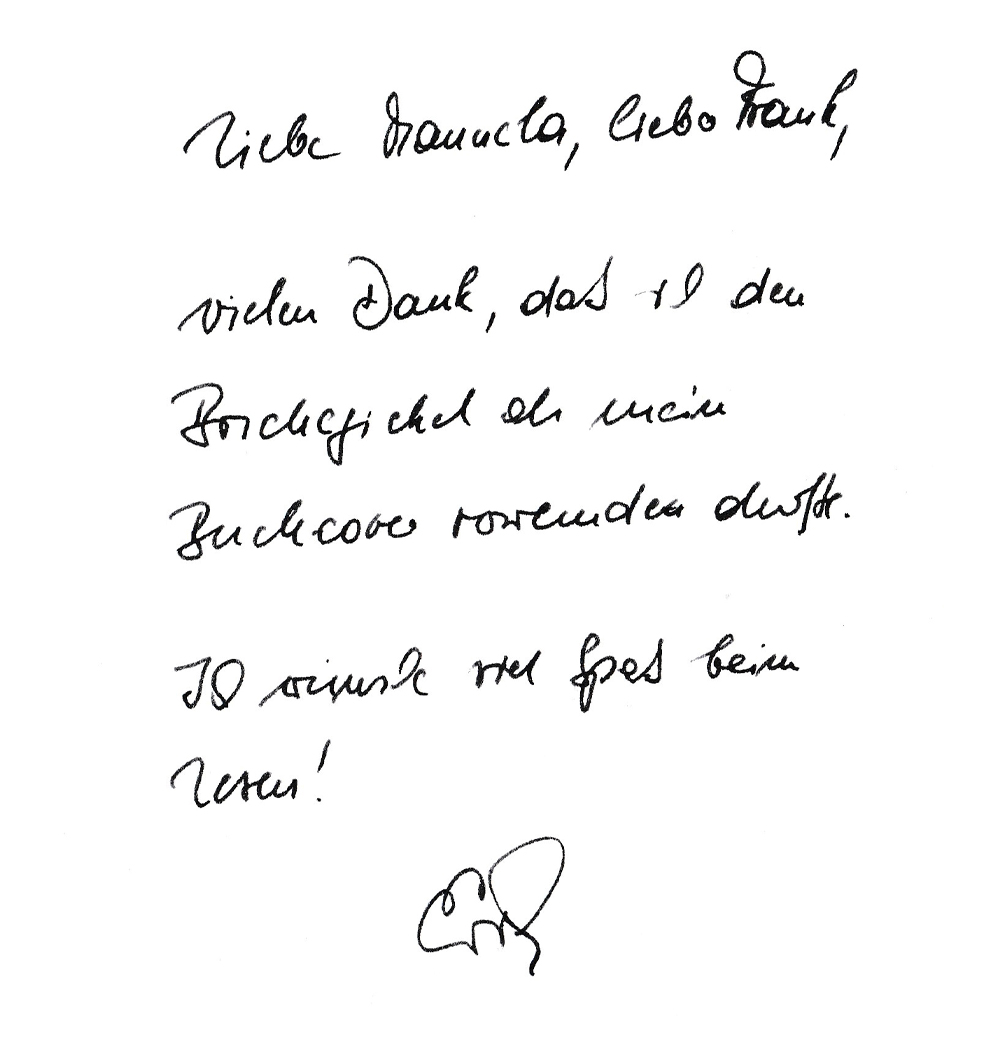 Liebe Manuela, lieber Frank,
vielen Dank, daß ich den
als mein
Buchcover verwenden durfte.
Ich wünsche viel Spaß beim
Lesen!